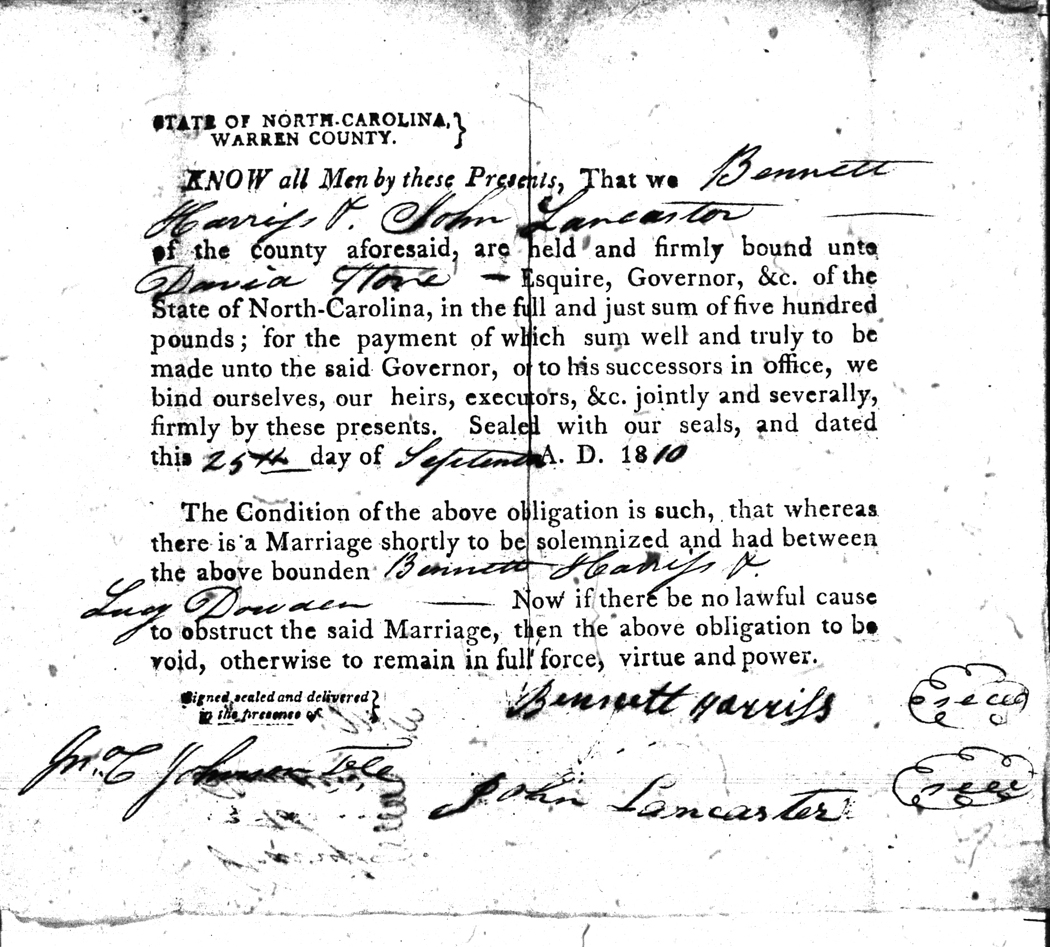 STATE OF NORTH-CAROLINA,}
WARREN COUNTY.
KNOW all Men by these Presents, That we Bennett
Harriss & John Lancaster
of the county aforesaid, are held and firmly bound unto
David Stone — Esquire, Governor, &c. of the
State of North-Carolina, in the full and just sum of five hundred
pounds; for the payment of which sum well and truly to be
made unto the said Governor, or to his successors in office, we
bind ourselves, our heirs, executors, &c. jointly and severally,
firmly by these presents. Sealed with our seals, and dated
this 25th day of September A. D. 1810
The Condition of the above obligation is such, that whereas
there is a Marriage shortly to be solemnized and had between
the above bounden Bennett Harriss &
Lucy Dowden — Now if there be no lawful cause
to obstruct the said Marriage, then the above obligation to be
void, otherwise to remain in full force, virtue and power.
Signed sealed and delivered}
in the presence of
Bennett Harriss seal
Johnson
John Lancaster seal